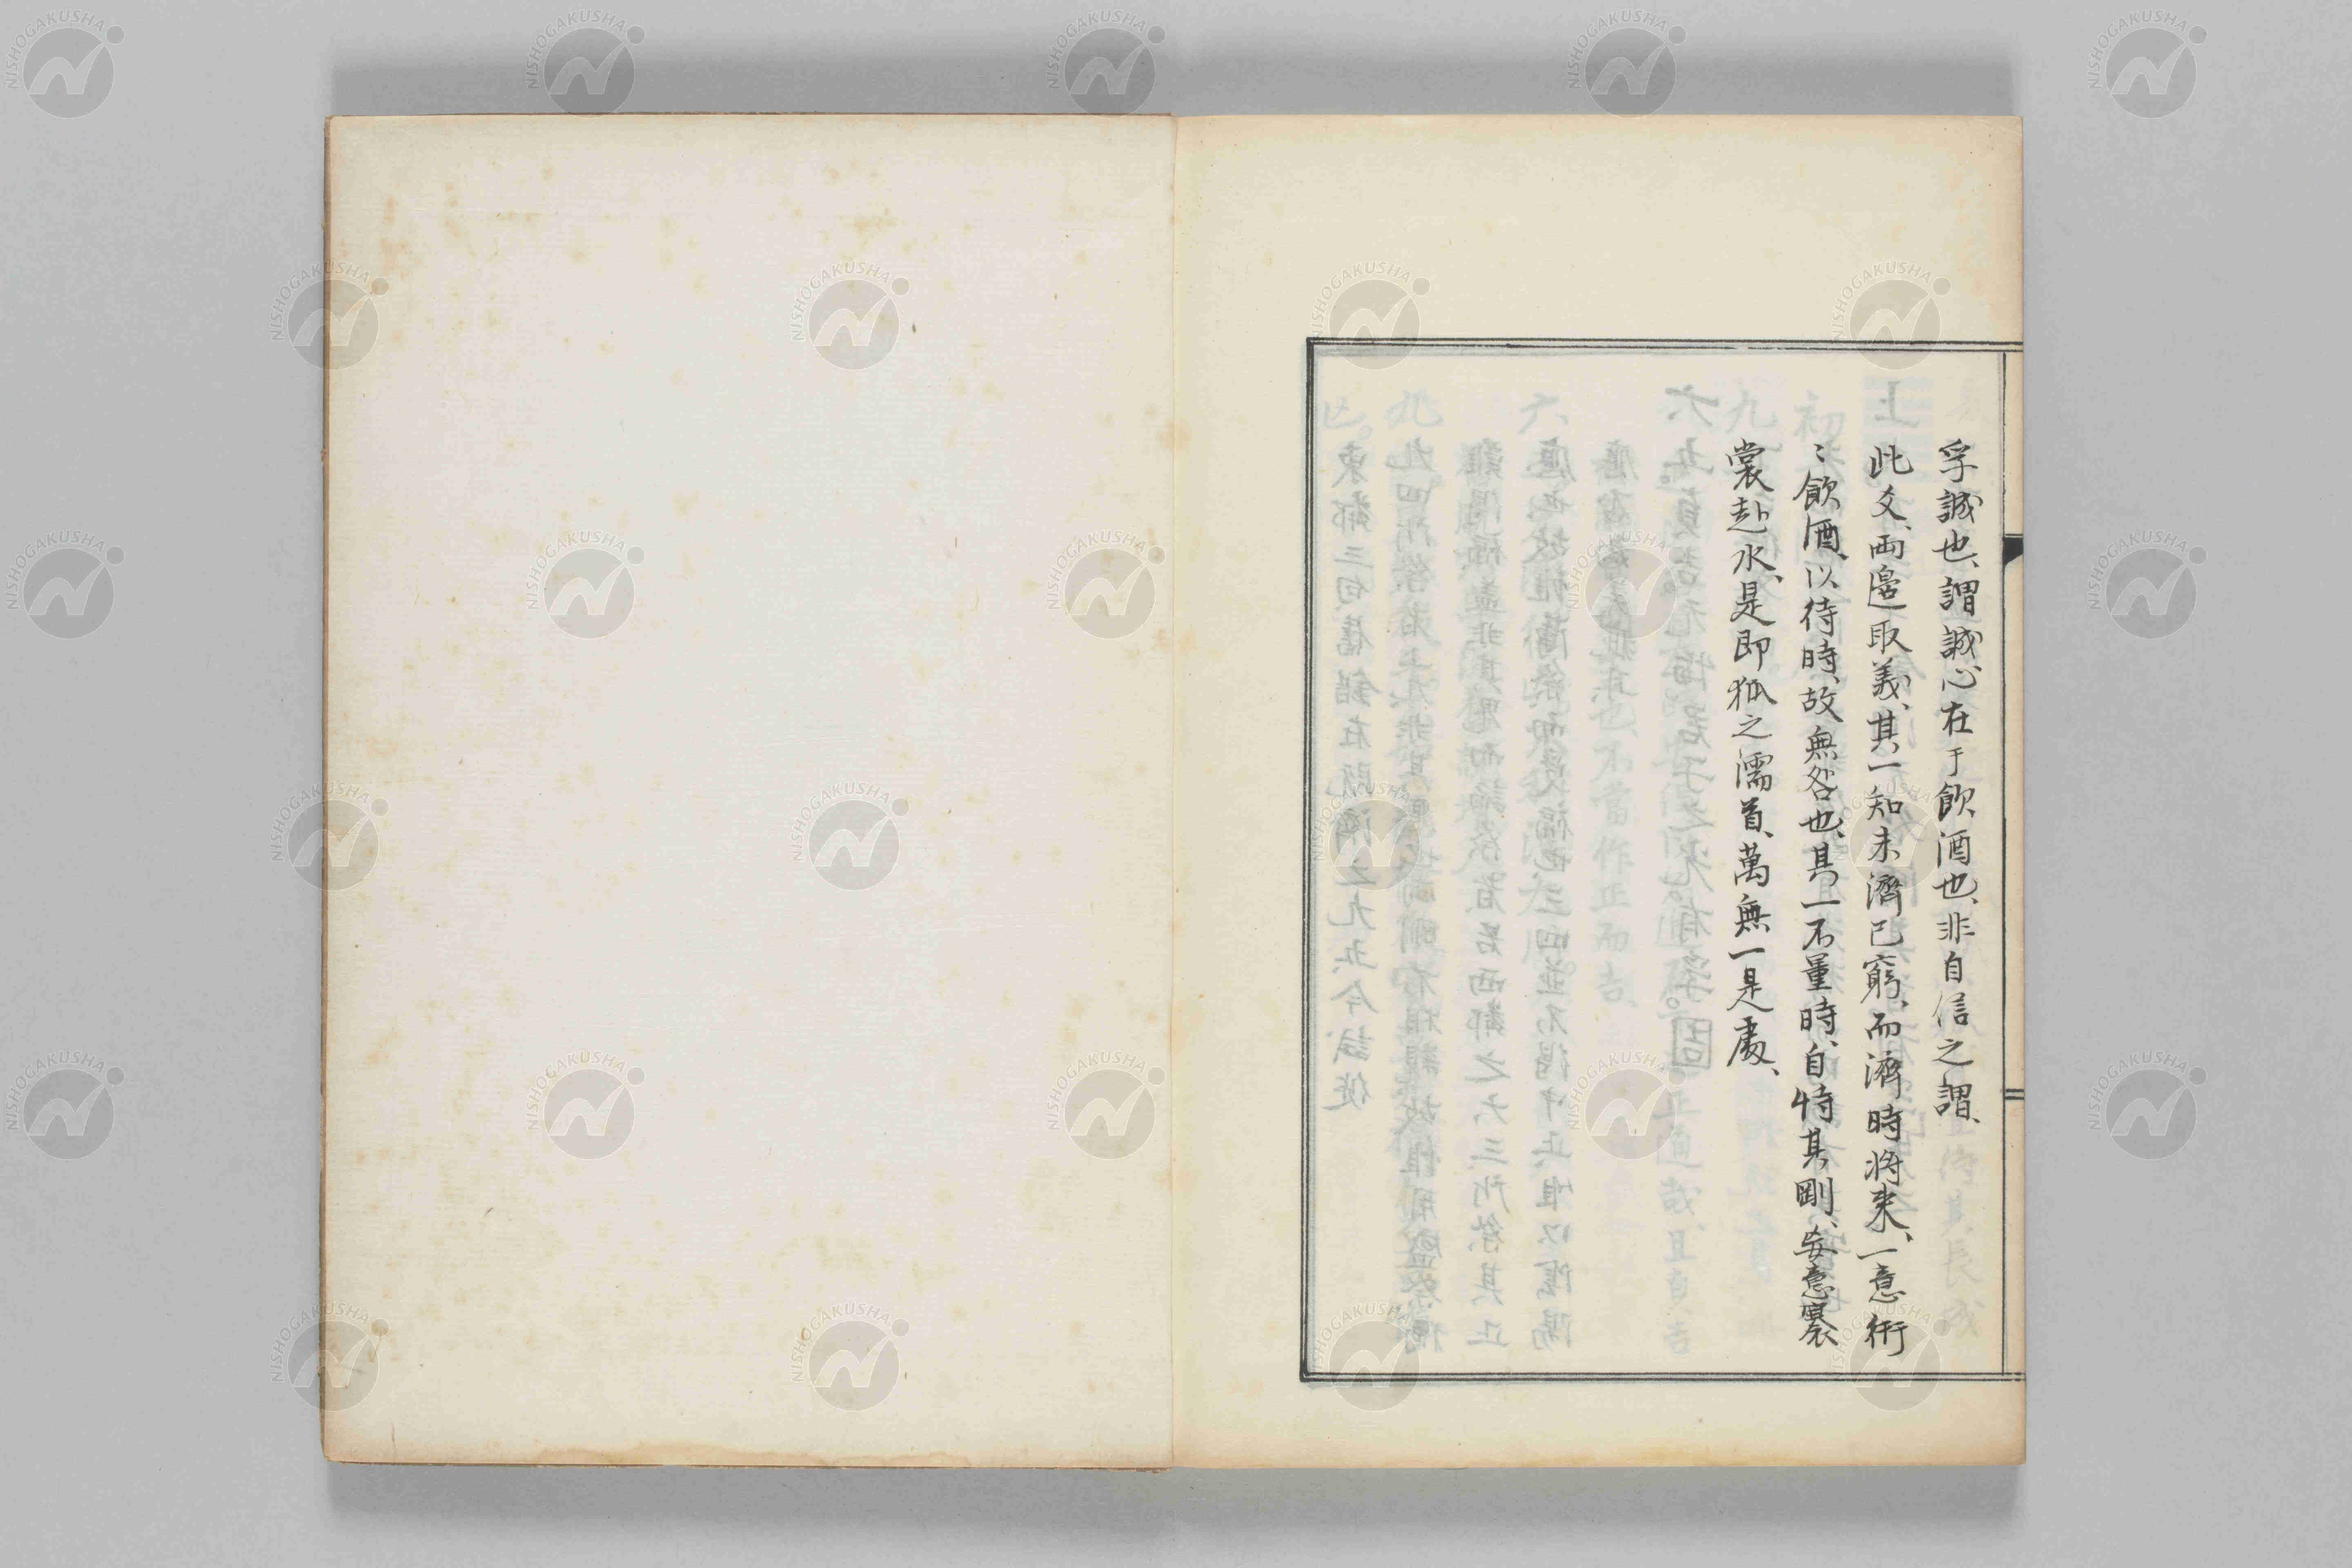 孚誠也、謂誠心在于飲酒也、非自信之謂、
此爻、両邊取義、其一知未濟已窮、而濟時將来、一意術
〻飲酒、以待時、故無咎也、其一不量時、自恃其剛、妄意褰
裳赴水、是即狐之濡首、萬無一是處、
NISHOGAKUSHA